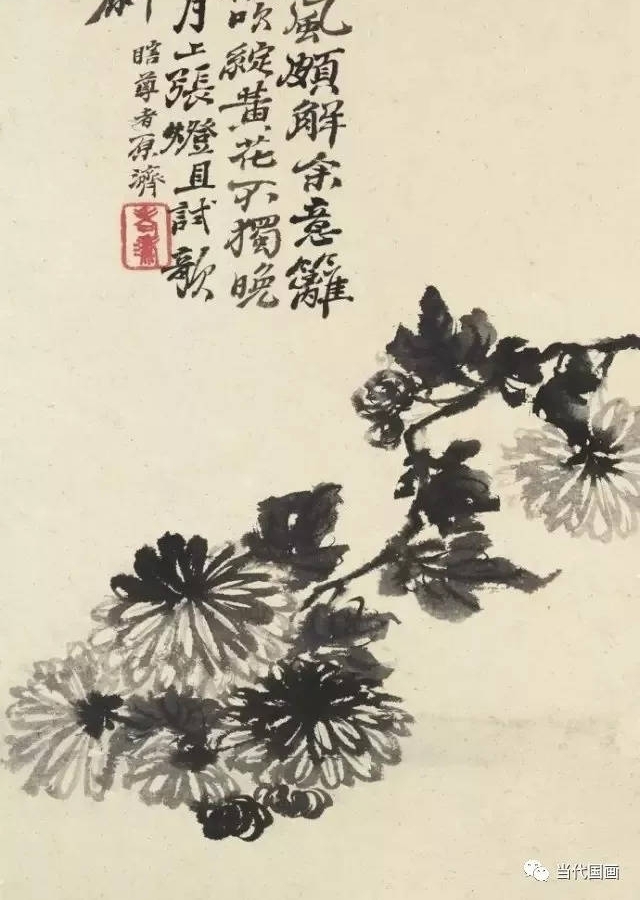 風頗解余意籬
吹綻黃花不獨晚
月上張燈且試歌
瞎尊者原濟
当代国画